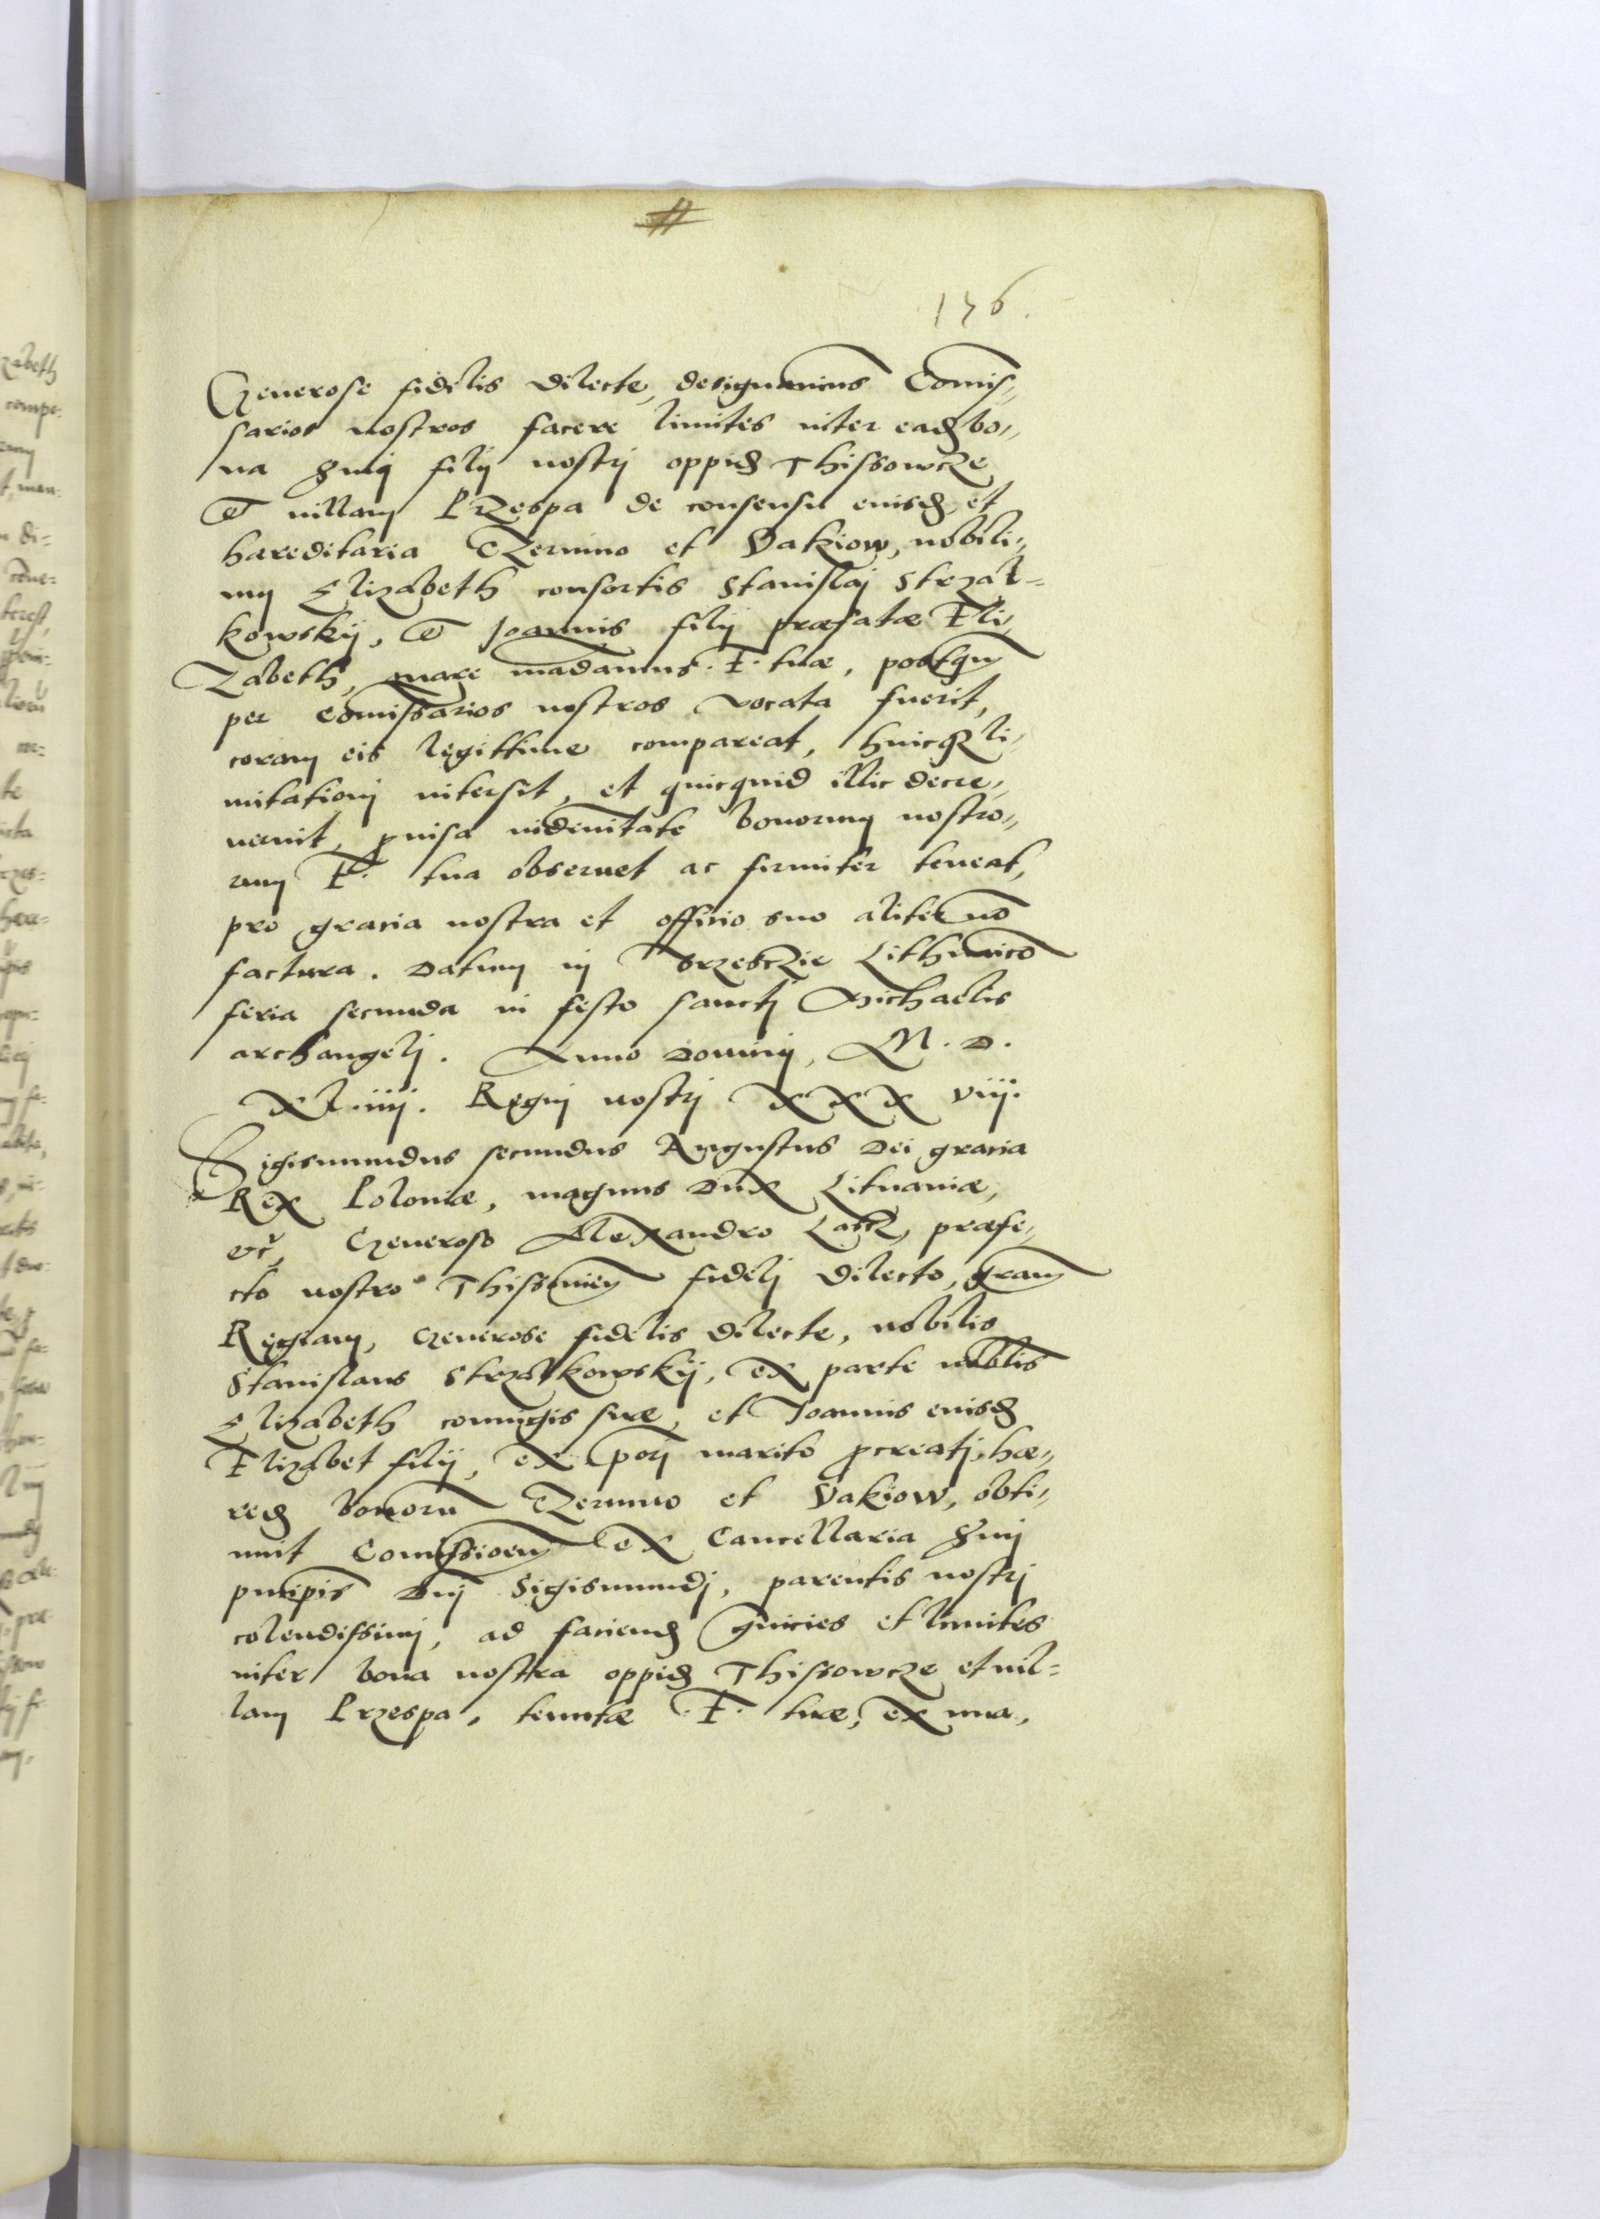 176.
Generose fidelis dilecte, designauimus Comis„
sarios nostros facere limites inter ead bo„
na Smi filij nostrj oppid Thissowcze
et villam Przespa de consensu euisd, et
hæreditaria Czermno et Wakiow, nobili„
um Elizabeth consortis Stanislaj Strzal-
kowskij, et Joannis filij præfatæ Eli„
zabeth, quare mādamus. F. tuæ, postqm
per Comissarios nostros vocata fuerit,
coram eis legittime compareat, huicqz li„
mitationj intersit, et quicquid illic decre„
uerint, puisa indēnitate bonorum nostro„
rum F. tua obseruet ac firmiter teneat,
pro gracia nostra et officio suo aliter nō
factura. Datum in Brzesczie Lithuanicō
feria secunda in festo sanctj Michaelis
archangelj. Anno Dominj, M. D.
XLiiij. Regnj nostrj XXX viij.
Sigismundus secundus Augustus Dei gracia
Rex Poloniæ, magnus Dux Lituaniæ,
etc, Generoso Alexandro Lascz, præfe„
cto nostro Thissouien fidelj dilecto, gram
Regiam, Generose fidelis dilecte, nobilis
Stanislaus Strzalkowskij, ex parte nobilis
Elizabeth coniugis suæ, et Joannis euisd
Elizabet filij, ex priorj marito pcreatj, hæ„
red bonorū Czermno et Wakiow, obti„
nuit Comissioem ex Cancellaria Smi
principis Dnj Sigismundj, parentis nostrj
colendissimj, ad faciend granicies et limites
inter bona nostra oppid Thissowcze et vil-
lam Przespa, tenutæ F. tuæ, ex una,